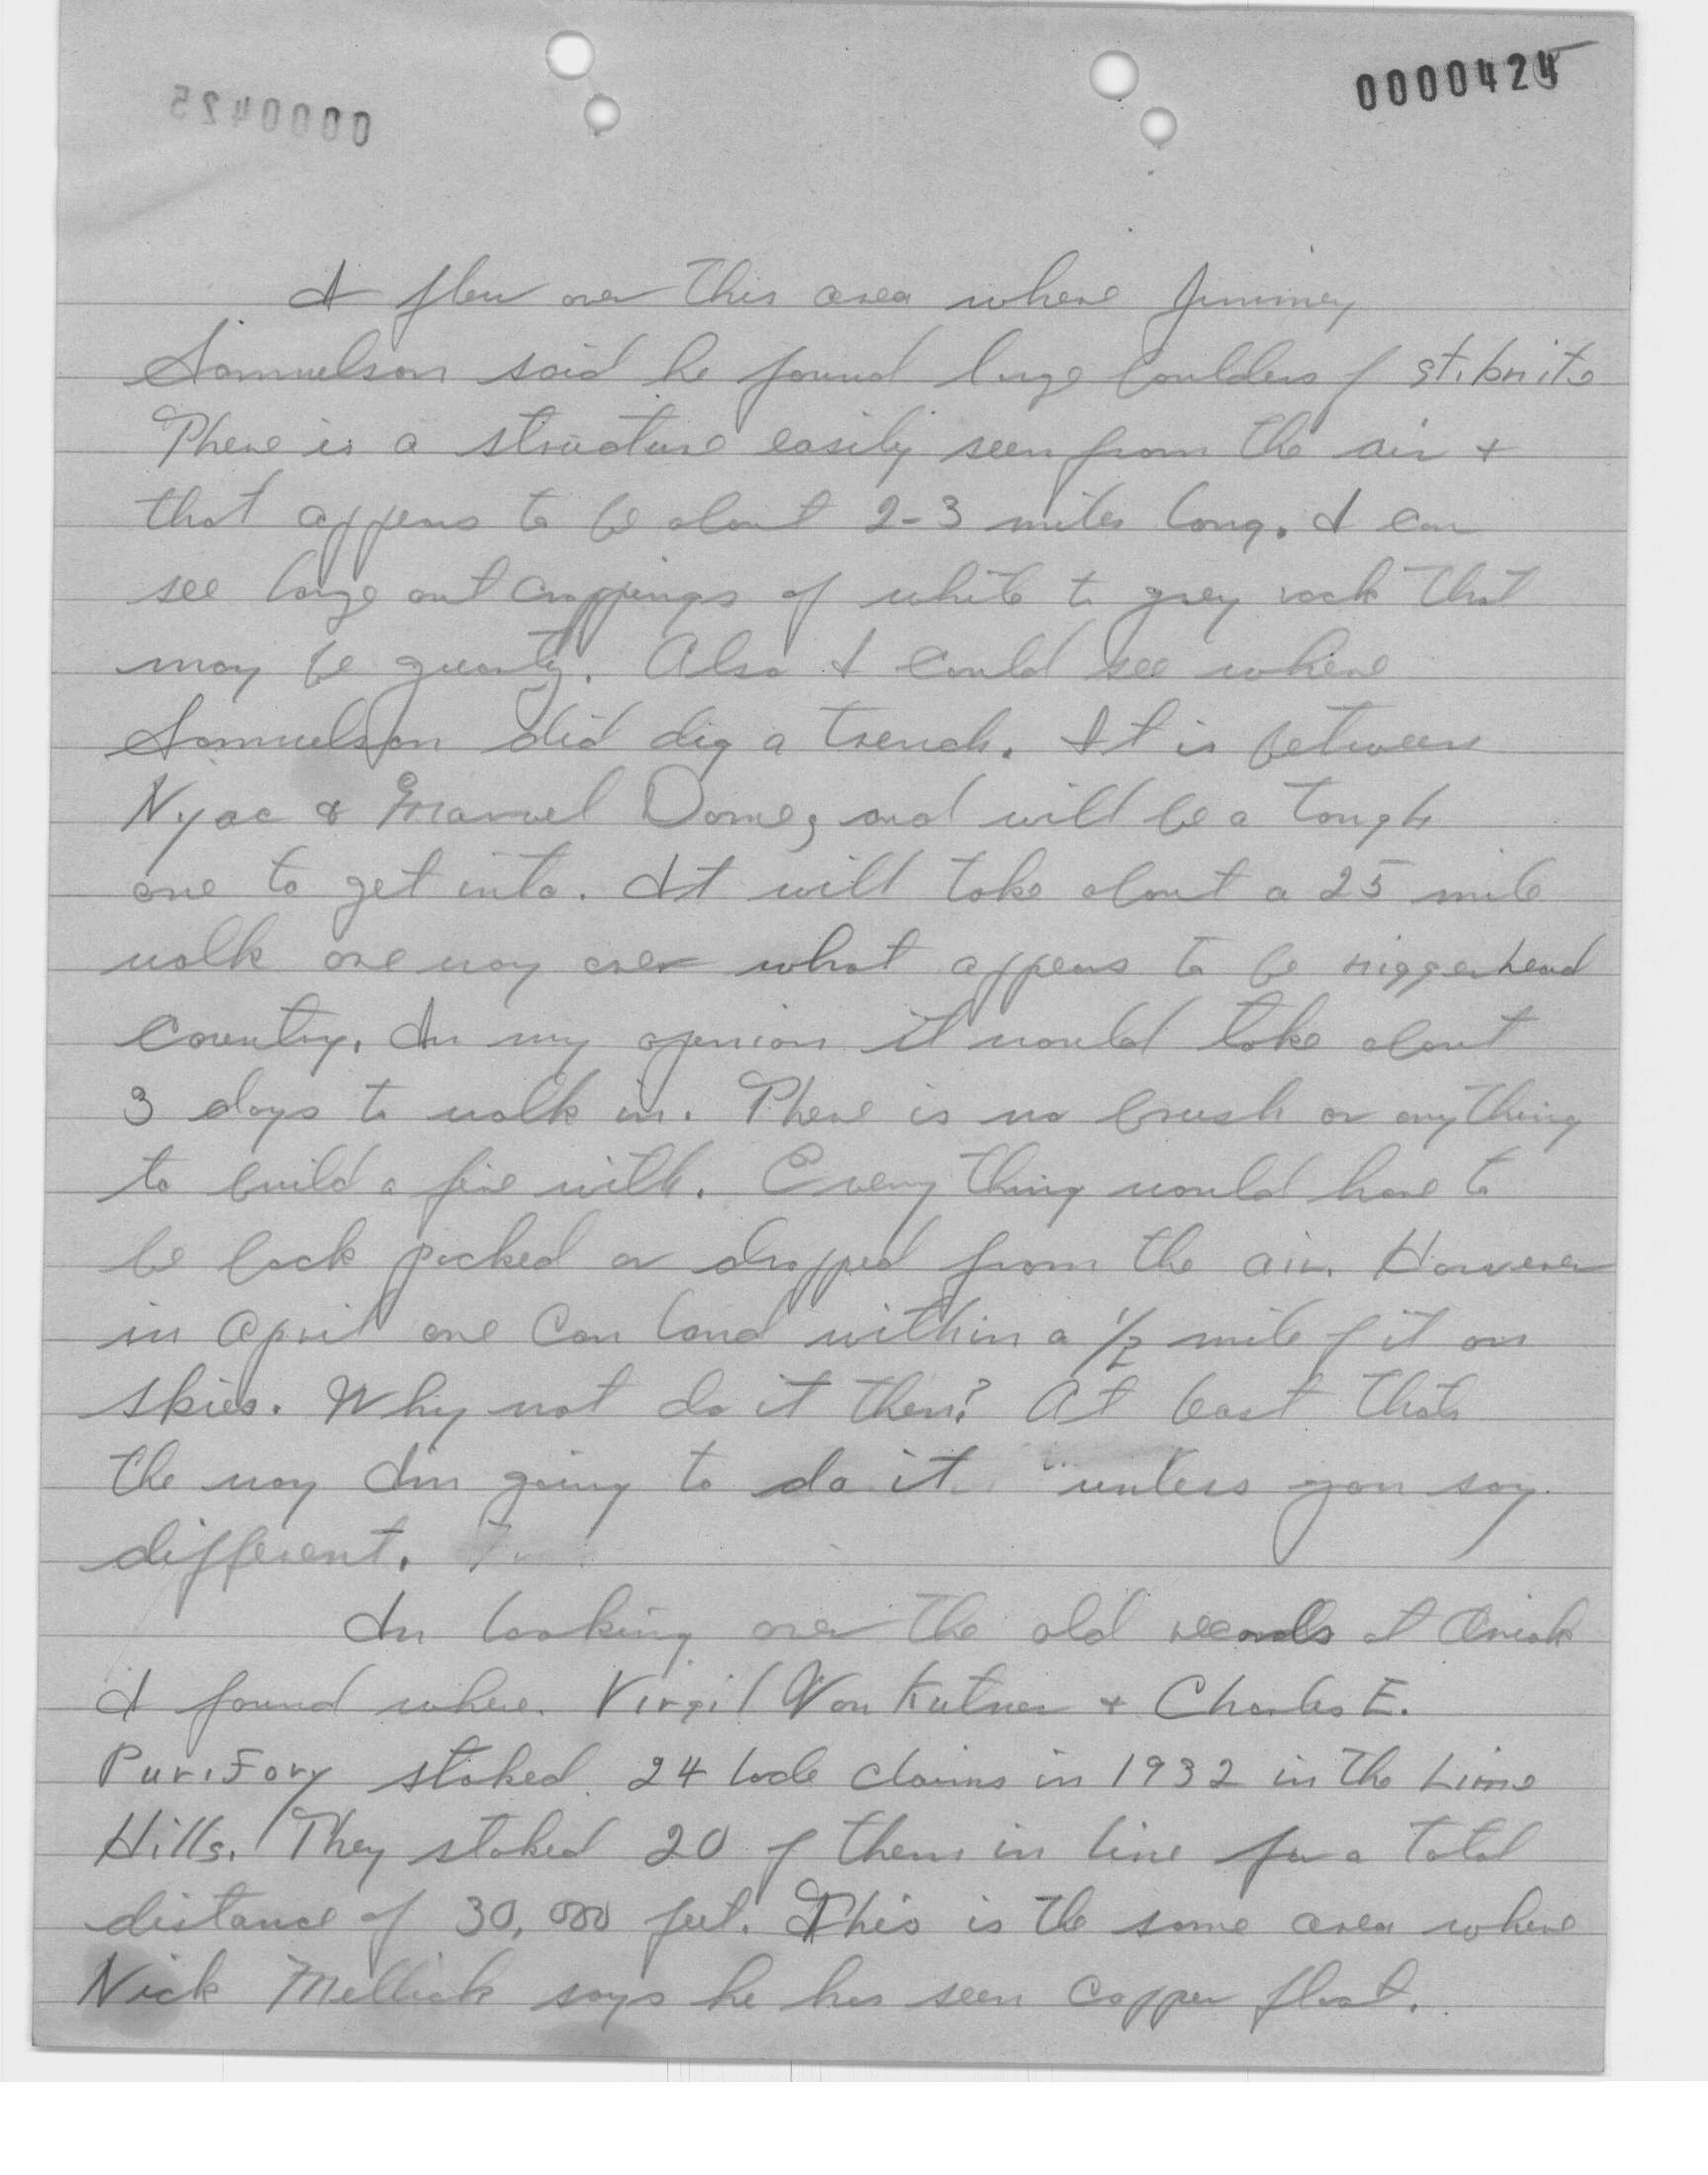 0000424
0000425
I flew over this area where Jimmey
Samuelson said he found large boulders of stibnite
There is a structure easily seen from the air +
that appears to be about 2-3 miles long. I can
see large out croppings of white to grey rock that
may be quartz. Also I could see where
Samuelson did dig a trench. It is between
Nyac & Marvel Dome, and will be a tough
one to get into. It will take about a 25 mile
walk one way over what appears to be niggerhead
country. In my openion it would take about
3 days to walk in. There is no brush or anything
to build a fire with. Every thing would have to
be back packed or dropped from the air. However
in April one can land within a 1/2 mile of it on
skies. Why not do it then? At least thats
the way Im going to do it unless you say
different.
In looking over the old records at Aniak
I found where Virgil Von Kutner + Charles E.
Purifory staked 24 lode claims in 1932 in the Lime
Hills. They staked 20 of them in line for a total
distance of 30,000 feet. This is the same area where
Nick Mellick says he has seen copper float.